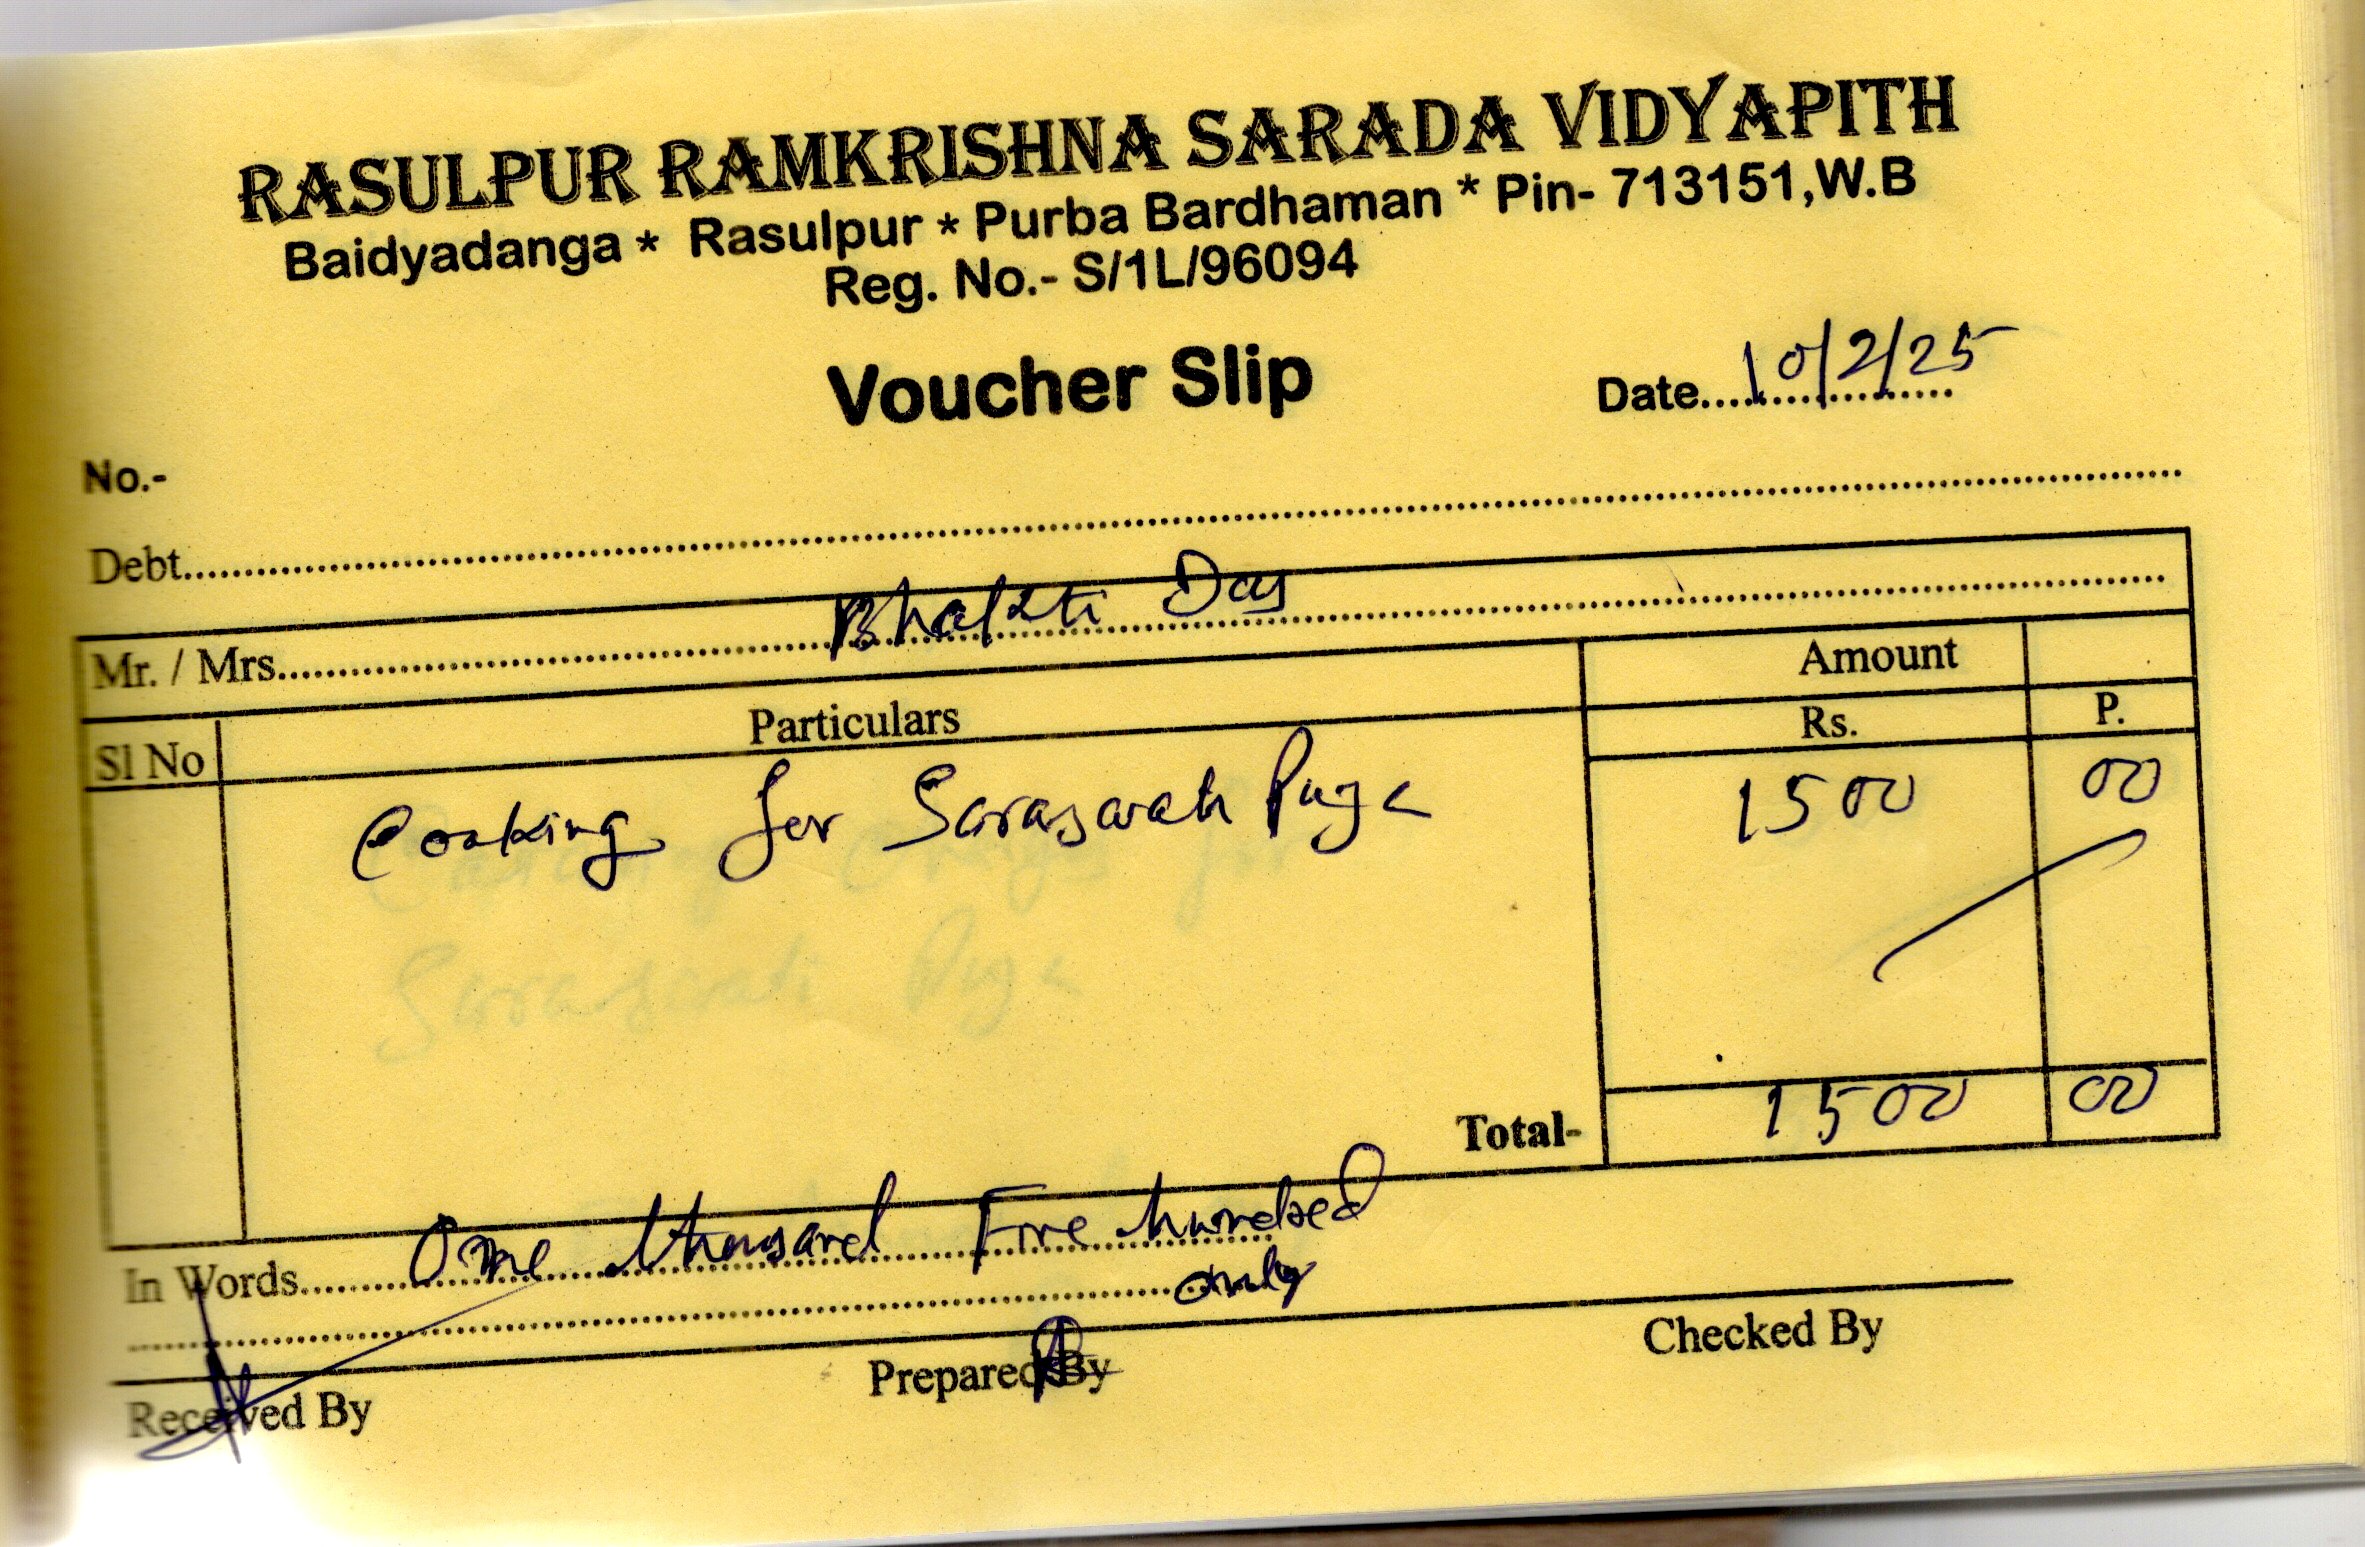 RASULPUR RAMKRISHNA SARADA VIDYAPITH
Baidyadanga * Rasulpur * Purba Bardhaman * Pin- 713151,W.B
Reg. No.- S/1L/96094
Voucher Slip
Date....10/2/25....
No.-
Debt....
Mr. / Mrs.... Bhakti Das
Sl No Particulars Amount
Rs. P.
Cooking for Saraswati Puja 1500 00
Total- 1500 00
In Words.... One thousand Five hundred
only
Received By Prepared By Checked By